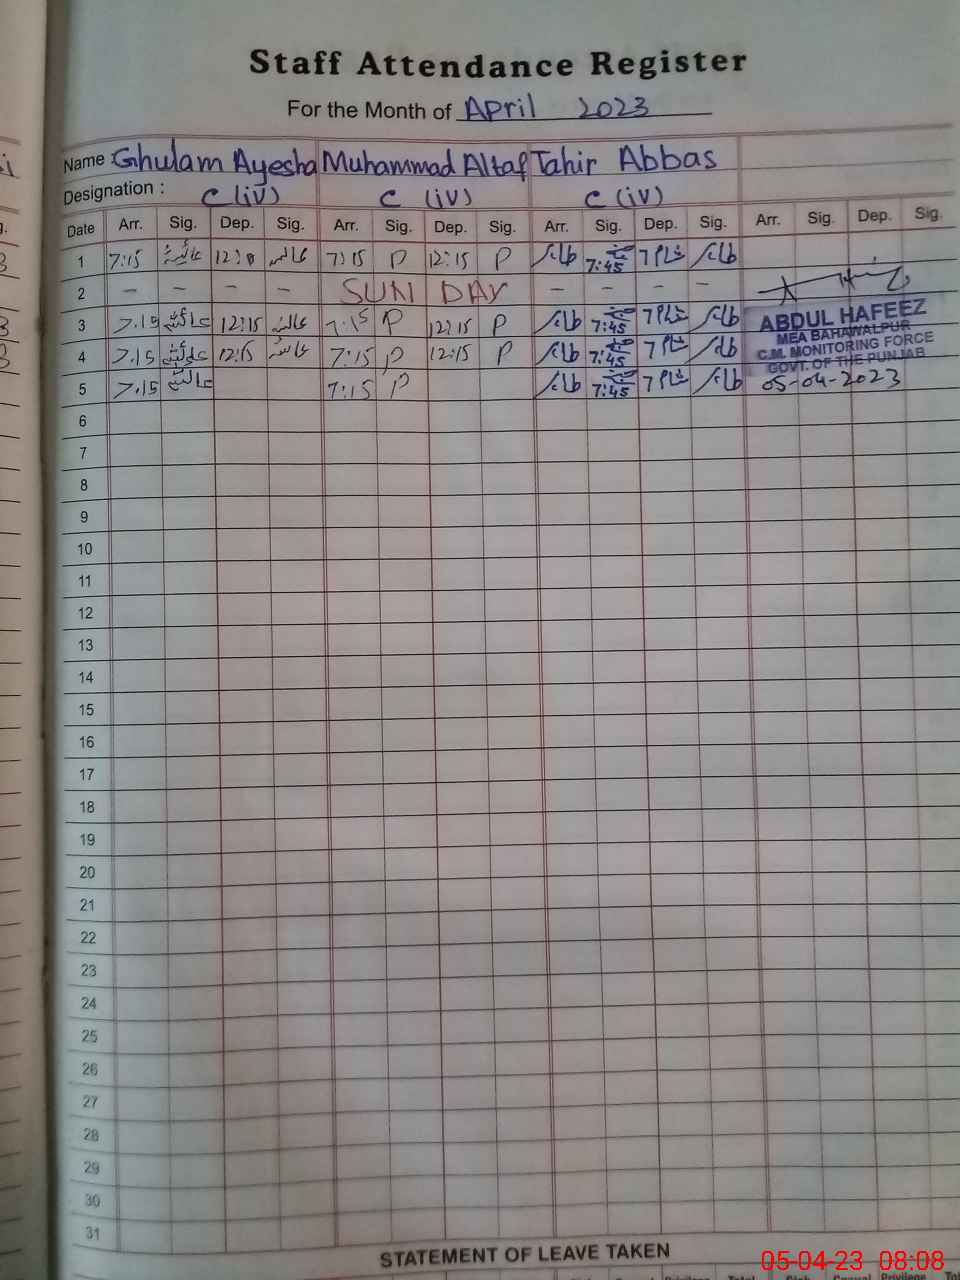 Staff Attendance Register
For the Month of April 2023
Name : Ghulam Ayesha Muhammad Altaf Tahir Abbas
Designation : C (iv) C (iv) C (iv)
Date Arr. Sig. Dep. Sig. Arr. Sig. Dep. Sig. Arr. Sig. Dep. Sig. Arr. Sig. Dep. Sig.
1 7:15 عائشہ عائشہ 7:15 P 12:15 P طاہر 7:45 7 شام طاہر
2 – – – – SUN DAY – – – –
3 7.15 عائشہ 12:15 عائشہ 7:15 P 12:15 P طاہر 7:45 7 شام طاہر
ABDUL HAFEEZ
MEA BAHAWALPUR
4 7.15 عائشہ 12:15 عائشہ 7:15 P 12:15 P طاہر 7:45 7 شام طاہر
C.M. MONITORING FORCE
GOVT. OF THE PUNJAB
5 7.15 عائشہ 7:15 P طاہر 7:45 7 شام طاہر 05-04-2023
6
7
8
9
10
11
12
13
14
15
16
17
18
19
20
21
22
23
24
25
26
27
28
29
30
31
STATEMENT OF LEAVE TAKEN
05-04-23 08:08